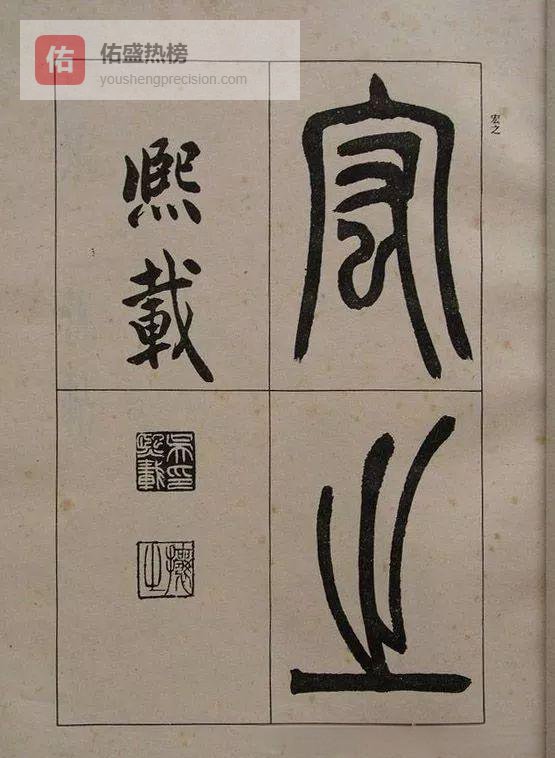 佑 佑盛热榜
youshengprecision.com
宏之
宏之
熙載
吳熙載印
攘之